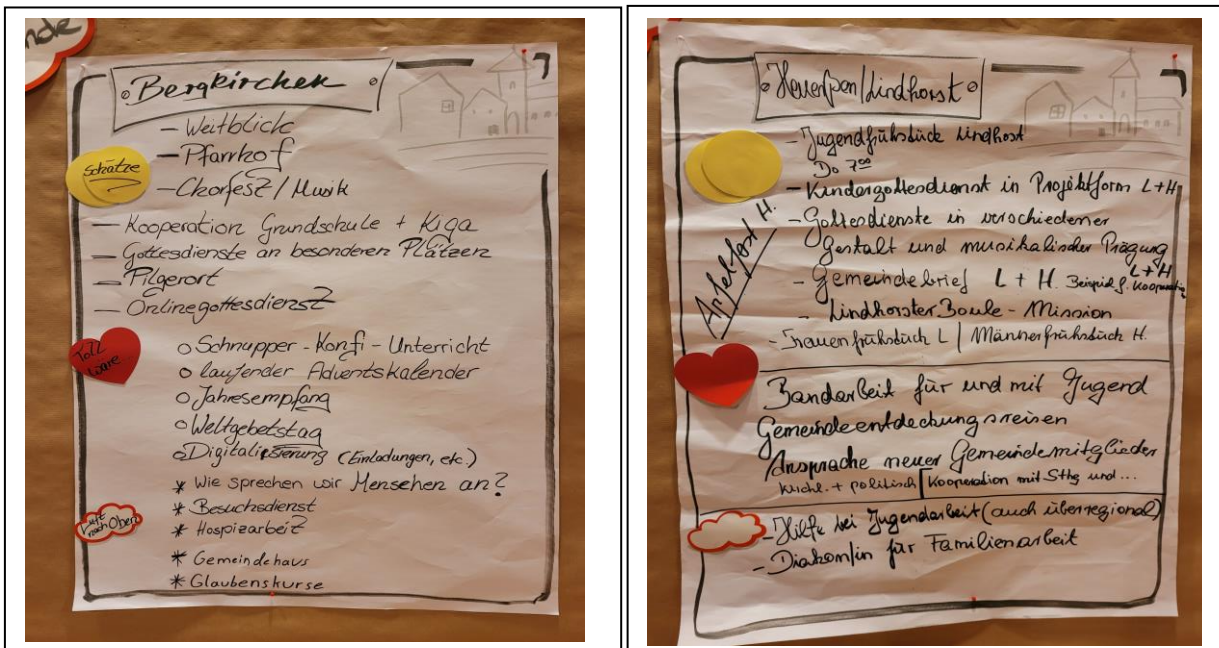 nde
Bergkirchen
Schätze
- Weitblick
- Pfarrhof
- Chorfest / Musik
- Kooperation Grundschule + Kiga
- Gottesdienste an besonderen Plätzen
- Pilgerort
- Onlinegottesdienst
Toll wäre
o Schnupper-Konfi-Unterricht
o laufender Adventskalender
o Jahresempfang
o Weltgebetstag
o Digitalisierung (Einladungen, etc.)
Luft nach Oben
* Wie sprechen wir Menschen an?
* Besuchsdienst
* Hospizarbeit
* Gemeindehaus
* Glaubenskurse
Heuerßen/Lindhorst
- Jugendfrühstück Lindhost
Do 7⁰⁰
- Kindergottesdienst in Projektform L+H
- Gottesdienste in verschiedener
Gestalt und musikalischer Prägung
L+H
- Gemeindebrief L + H. Beispiel f. Kooperation
- Lindhorster Boule-Mission
- Frauenfrühstück L | Männerfrühstück H.
Apfelfest H.
Bandarbeit für und mit Jugend
Gemeindeentdeckungsreisen
Ansprache neuer Gemeindemitglieder
kirchl. + politisch | Kooperation mit Sthg und ...
- Hilfe bei Jugendarbeit (auch überregional)
- Diakon/in für Familienarbeit